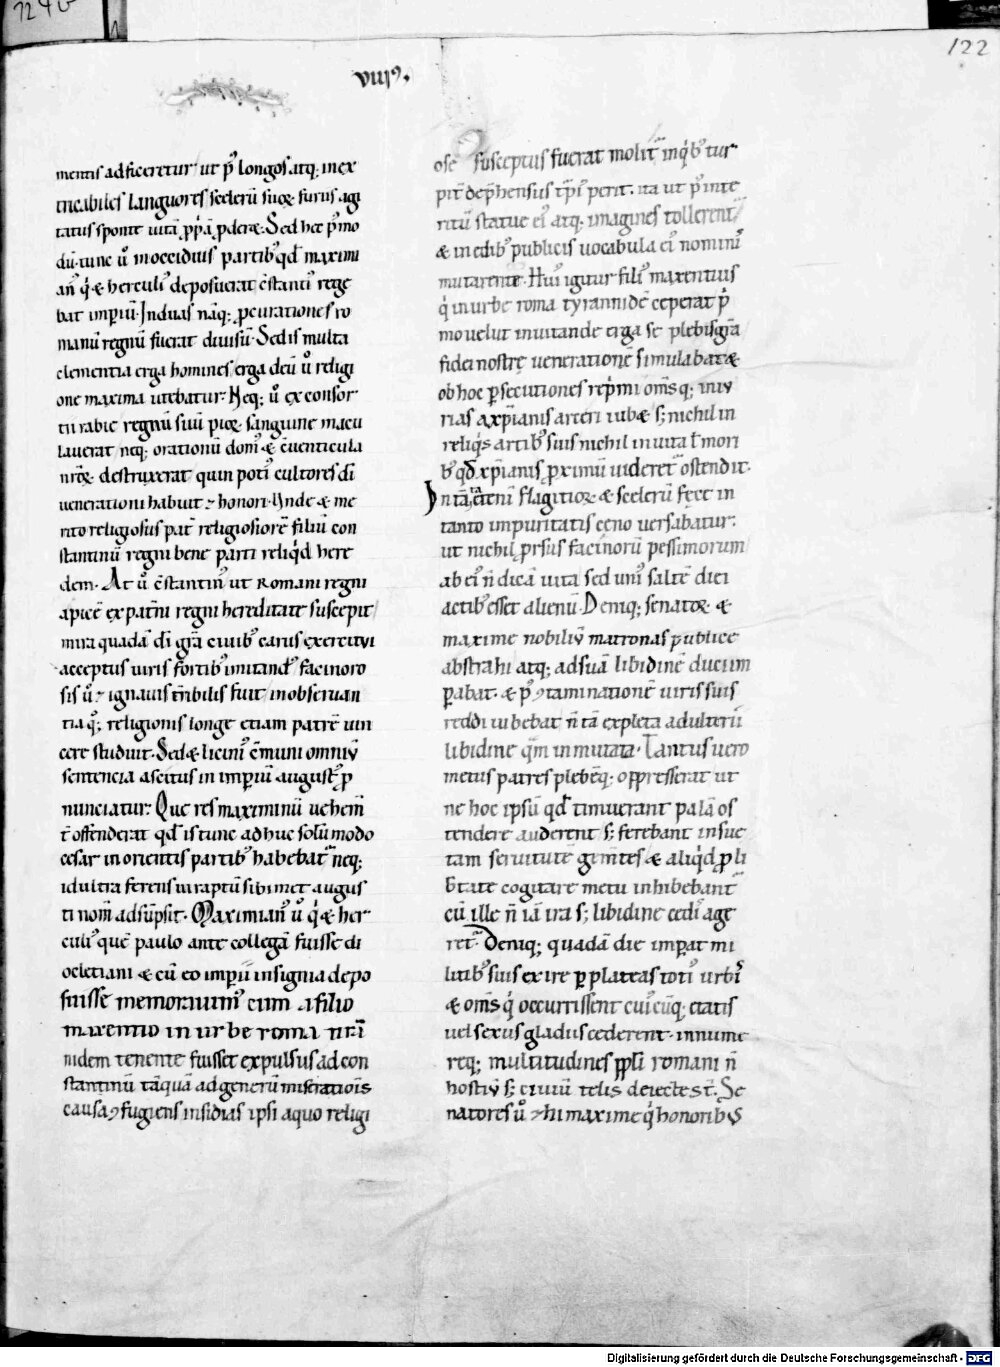 122
viiiꝯ.
mentis adficeretur ut p̄ longos atq; inex
tricabiles languores scelerū suoꝝ furiis agi
tatus sponte uitā ꝓp̄a ꝑderæ. Sed hec p̄mo
dū. tunc ů in occiduis partib; qd̄ maximi
anꝰ q̇ & herculiꝰ deposuerat c̄stantiꝰ rege
bat imperiū. In duas nāq; ꝓcurationes ro
manū regnū fuerat diuisū. Sed is multa
clementia erga homines. erga deū ů religi
one maxima utebatur. Neq; ů ex consor
tii rabie regnū suū pioꝝ sanguine macu
lauerat neq; orationū domꝰ & c̄uenticula
nr̄oꝝ destruxerat quin potiꝰ cultores di
uenerationi habuit ⁊ honori. Unde & me
rito religiosus pat̄ religiosiorē filiū con
stantinū regni bene parti reliq̇d here
dem. At ů c̄stantinꝰ ut Romani regni
apicē ex pat̄ni regni hereditate suscepit
mira quadā di gr̄a ciuib; carus exercitui
acceptus uiris fortib; imitandꝰ facinoro
sis ů ⁊ ignauis t̄ribilis fuit in obseruan
tia q; religionis longe etiam patrē uin
cere studuit. Sed & liciniꝰ c̄muni omniū
sentencia ascitus in imperiū augustꝰ ꝓ
nunciatur. Que res maximinū uehem̄
t̄ offenderat qd̄ is tunc adhuc solūmodo
cesar in orientis partib; habebat̄ neq;
id ultra ferens ui raptū sibimet augus
ti nom̄ adsūpsit. Maximianꝰ ů q̇ & her
culiꝰ quē paulo ante collegā fuisse di
ocletiani & cū eo imperii insignia depo
suisse memorauimꝰ cum a filio
maxentio in urbe roma tiran
nidem tenente fuisset expulsus ad con
stantinū tāquā ad generū miserationis
causa ꝯfugiens insidias ipsi a quo religi
ose susceptus fuerat molit̄ in q̇b; tur
pit̄ dep̄hensus t̄piꝰ perit. ita ut p̄ inte
ritū statue eiꝰ atq; imagines tollerent̄
& in edib; publicis uocabula eiꝰ nominiꝰ
mutarent̄. Huiꝰ igitur filiꝰ maxentius
q̇ in urbe roma tyrannidē ceperat p̄
mo uelut inuitande erga se plebis gr̄a
fidei nostrę uenerationē simulabat &
ob hoc ꝑsecutiones rep̄mi om̄sq; iniu
rias a xp̄ianis arceri iubæ s; nichil in
reliq̇s artib; suis nichil in uita ł mori
b; qd̄ xp̄ianis ꝓximū uideret̄ ostendit.
In tā cetenī flagitioꝝ & scelerū fęce in
tanto impuritatis ceno uersabatur.
ut nichil ꝓrsus facinorū pessimorum
ab eiꝰ n̄ dicā uita sed uniꝰ saltē diei
actib; esset alienū. Deniq; senatoꝝ &
maxime nobiliū matronas publice
abstrahi atq; ad suā libidinē ducim
ꝑabat. & p̄ ꝯtaminationē uiris suis
reddi iubebat n̄ tā expleta adulterii
libidine qm̄ inmutata. Tantus uero
metus patres plebēq; oppresserat ut
ne hoc ipsū qd̄ timuerant palā os
tendere auderent s; ferebant insue
tam seruitutē gem̄tes & aliq̇d ꝓ li
b̄tate cogitare metu inhibebant̄
cū ille n̄ iā ira s; libidine cediꝰ age
ret̄. Deniq; quadā die imperat mi
litib; suis exire ꝑ plateas totiꝰ urbiꝰ
& om̄s q̇ occurrissent cuiꝰcūq; etatis
uel sexus gladiis cederent. innume
req; multitudines ppl̄i romani n̄
hostiū s; ciuiū telis deiecte st̄. Se
natores ů ⁊ hi maxime q̇ honoribus
Digitalisierung gefördert durch die Deutsche Forschungsgemeinschaft - DFG